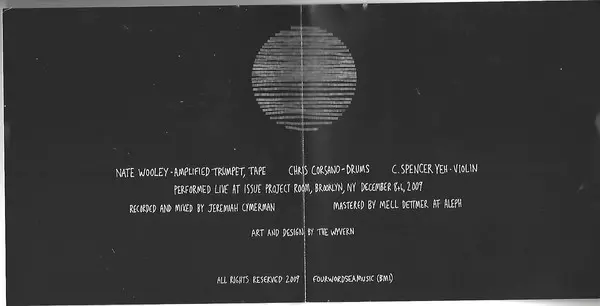 NATE WOOLEY-AMPLIFIED TRUMPET, TAPE CHRIS CORSANO-DRUMS C. SPENCER YEH-VIOLIN
PERFORMED LIVE AT ISSUE PROJECT ROOM, BROOKLYN, NY DECEMBER 8th, 2009
RECORDED AND MIXED BY JEREMIAH CYMERMAN MASTERED BY MELL DETTMER AT ALEPH
ART AND DESIGN BY THE WYVERN
ALL RIGHTS RESERVED 2009 FOURWORDSEAMUSIC (BMI)